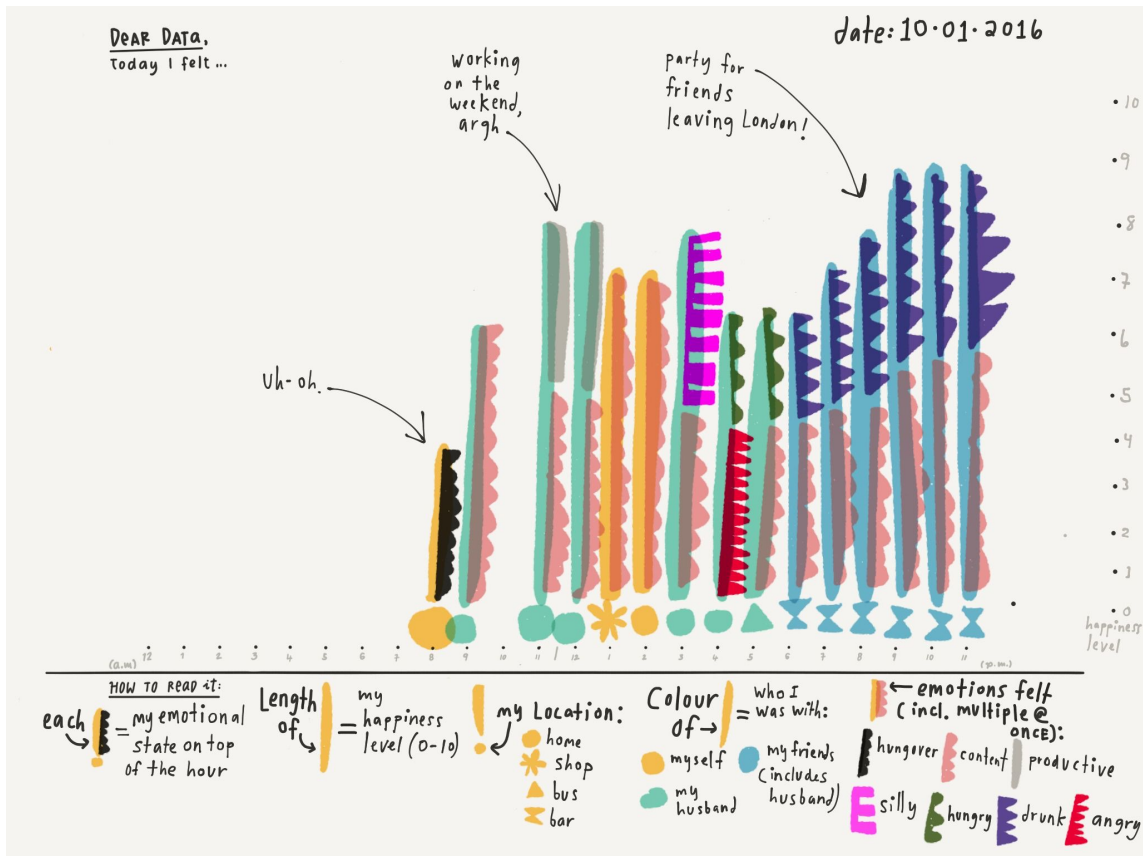 DEAR DATA,
Today I felt...
date: 10.01.2016
working
on the
weekend,
argh
party for
friends
leaving London!
Uh-oh.
10
9
8
7
6
5
4
3
2
1
0
happiness
level
(a.m) 12 1 2 3 4 5 6 7 8 9 10 11 12 1 2 3 4 5 6 7 8 9 10 11 (p.m.)
HOW TO READ it:
each = my emotional
state on top
of the hour
Length
of → = my
happiness
level (0-10)
my Location:
home
shop
bus
bar
Colour
of → = who I
was with:
myself
my
husband
my friends
(includes
husband)
← emotions felt
(incl. multiple @
once):
hungover
content
productive
silly
hungry
drunk
angry